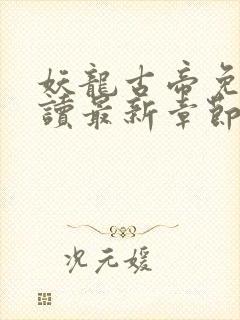 妖龍古帝免
讀最新章節
况元媛